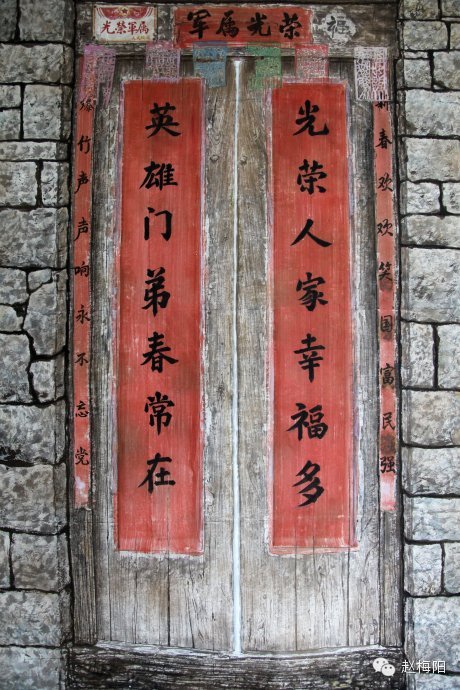 光榮軍属
军属光荣
福
春欢欢笑国富民强
光荣人家幸福多
英雄门弟春常在
竹声声响永不忘党
赵梅阳